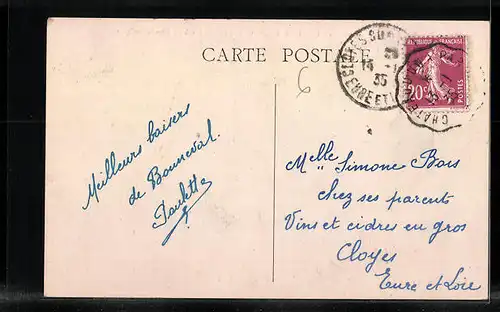 CARTE POSTALE
CLOYES SUR
14 -1
35
EURE ET L
REPUBLIQUE FRANÇAISE
20c
CHATEAUDUN
6
Meilleurs baisers
de Bonneval.
Paulette
Melle Simone Bois
chez ses parents
Vins et cidres en gros
Cloyes
Eure et Loir